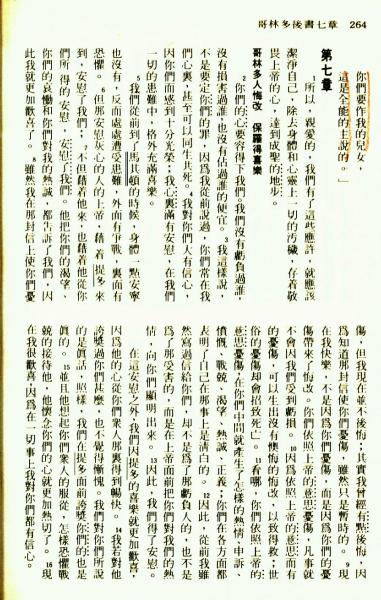 哥林多後書七章 264
你們要作我的兒女,
這是全能的主說的。」
第七章
1 所以,親愛的,我們有了這些應許,就應該
潔淨自己,除去身體和心靈上一切的污穢,存着敬
畏上帝的心,達到成聖的地步。
哥林多人悔改 保羅得喜樂
2 你們的心要容得下我們。我們沒有虧負過誰
沒有損害過誰,也沒有佔過誰的便宜。3 我這樣說,
不是要定你們的罪,因爲我從前說過,你們常在我
們心裏,甚至可以同生共死。4 我對你們大有信心,
因你們而感到十分光榮;我心裏滿有安慰,在我們
一切的患難中,格外充滿喜樂。
5 我們從前到了馬其頓的時候,身體一點安寧
也沒有,反而處處遭受患難,外面有爭戰,裏面有
恐懼。6 但那安慰灰心的人的上帝,藉着提多來
到,安慰了我們;7 不但藉着他來,也藉着他從你
們所得的安慰,安慰了我們。他把你們的渴望、
們的哀慟和你們對我的熱誠,都告訴了我們,因
此我就更加歡喜了。8 雖然我在那封信上使你們憂
傷,但我現在並不後悔;其實我曾經有點後悔,因
爲知道那封信使你們憂傷,雖然只是暫時的。9 現
在我快樂,不是因爲你們憂傷,而是因爲你們的憂
傷帶來了悔改。你們依照上帝的意思憂傷,凡事就
不會因我們受到虧損。10 因爲依照上帝的意思而有
的憂傷,可以生出沒有懊悔的悔改,以致得救;世
俗的憂傷卻會招致死亡。11 看哪,你們依照上帝的
意思憂傷,在你們中間就產生了怎樣的熱情、申訴、
憤慨、戰兢、渴望、熱誠、正義;你們在各方面都
表明了自己在那事上是清白的。12 因此,從前我雖
然寫過信給你們,卻不是爲了那虧負人的,也不是
爲了那受害的,而是在上帝面前把你們對我們的熱
情,向你們顯明出來。13 因此,我們得了安慰。
在這安慰之外,我們因提多的喜樂就更加歡喜,
因爲他的心從你們衆人那裏得到暢快。14 我若對他
誇獎過你們甚麼,也不覺得慚愧。我們對你們所說
的是真話,照樣,我們在提多面前誇獎你們的也是
真的。15 並且他想起你們衆人的服從,怎樣恐懼戰
兢的接待他,他懷念你們的心就更加熱切了。16 現
在我很歡喜,因爲在一切事上我對你們都有信心。